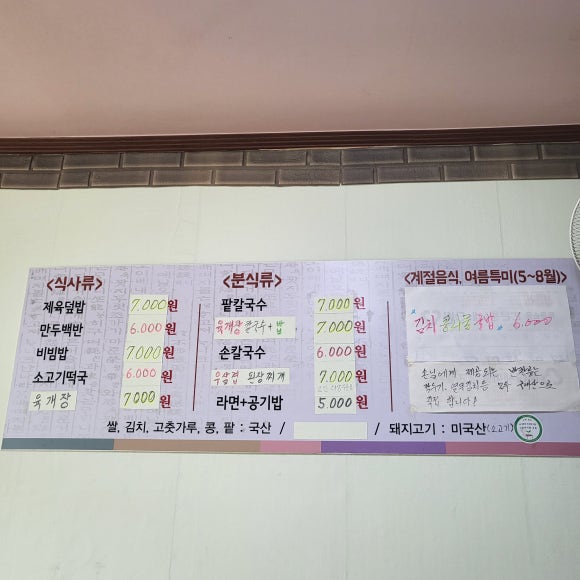 <식사류>
제육덮밥 7.000원
만두백반 6.000원
비빔밥 7.000원
소고기떡국 6.000원
육개장 7.000원
<분식류>
팥칼국수 7.000원
육개장 칼국수+밥 7.000원
손칼국수 6.000원
우삼겹 된장찌개 7.000원
라면+공기밥 5.000원
<계절음식, 여름특미(5~8월)>
김치 콩나물 국밥 6.000
손님에게 제공되는
모두 국산으로
합니다!
쌀, 김치, 고춧가루, 콩, 팥 : 국산 / / 돼지고기 : 미국산(소고기)